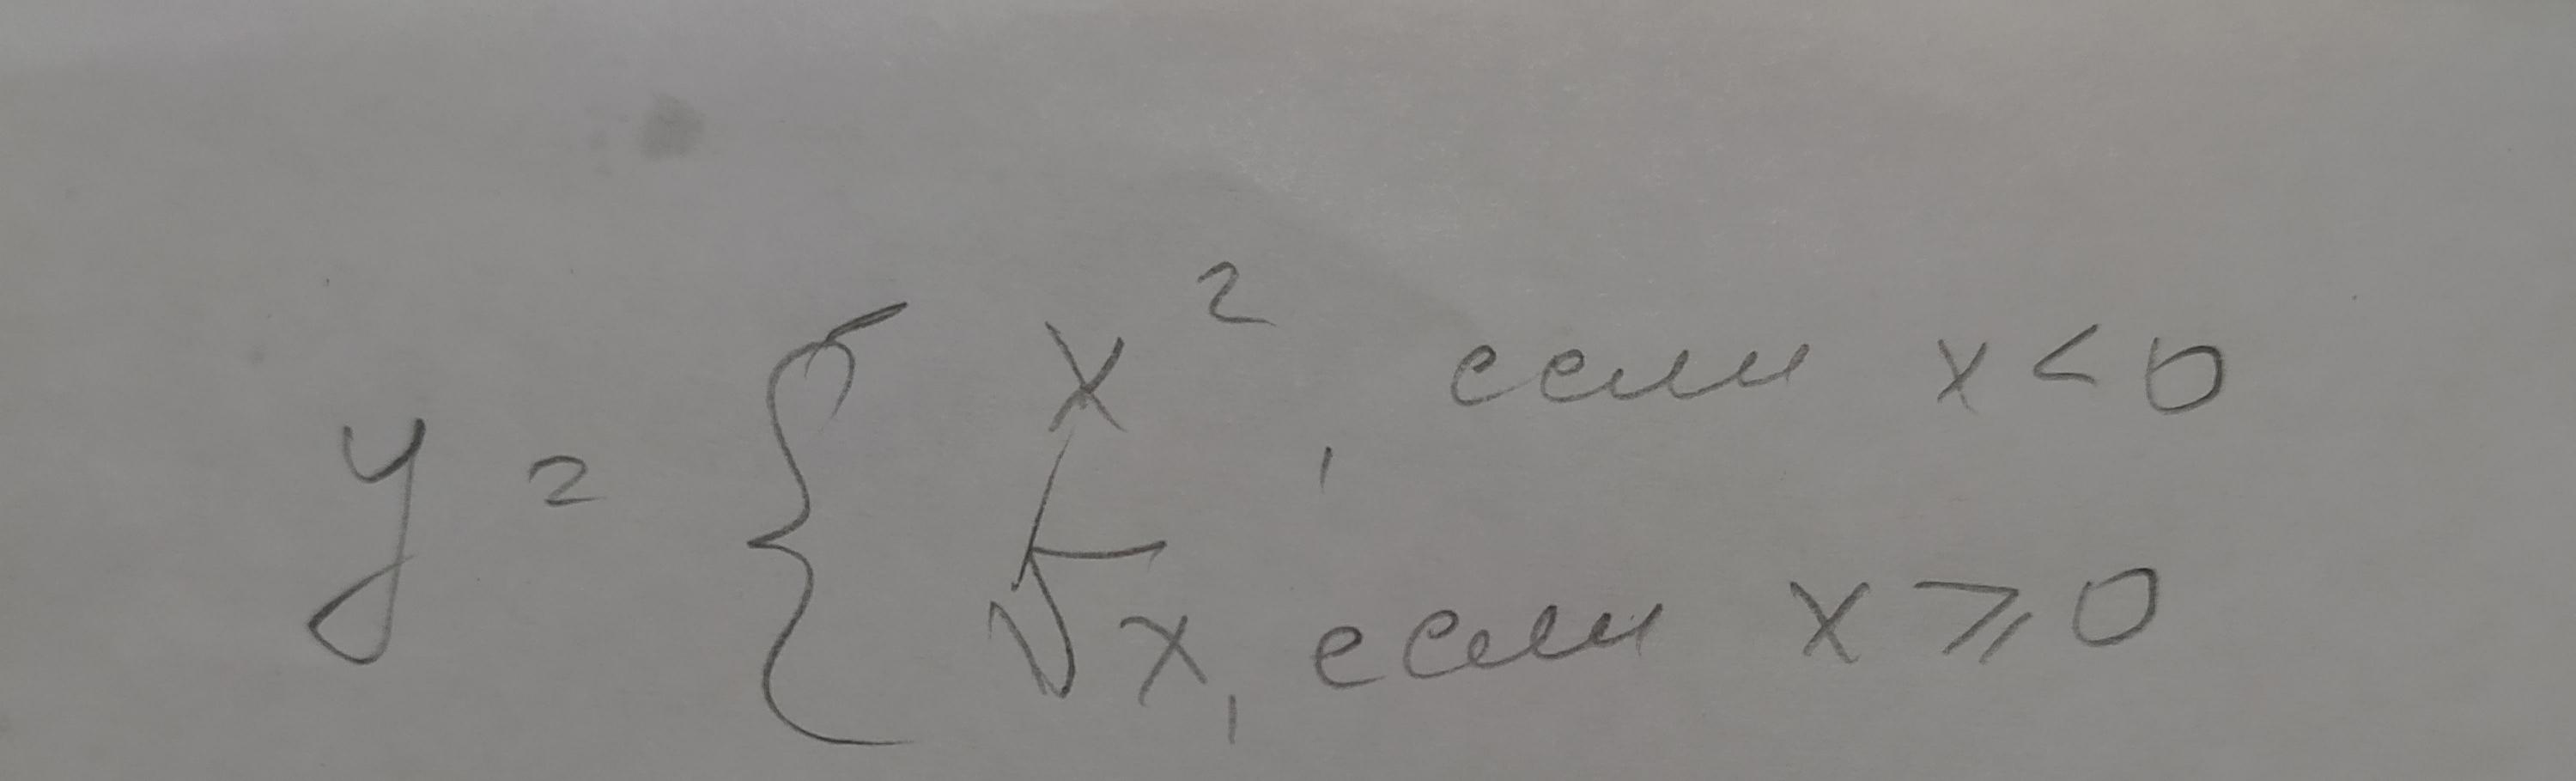 y = { x², если x < 0
√x, если x ⩾ 0